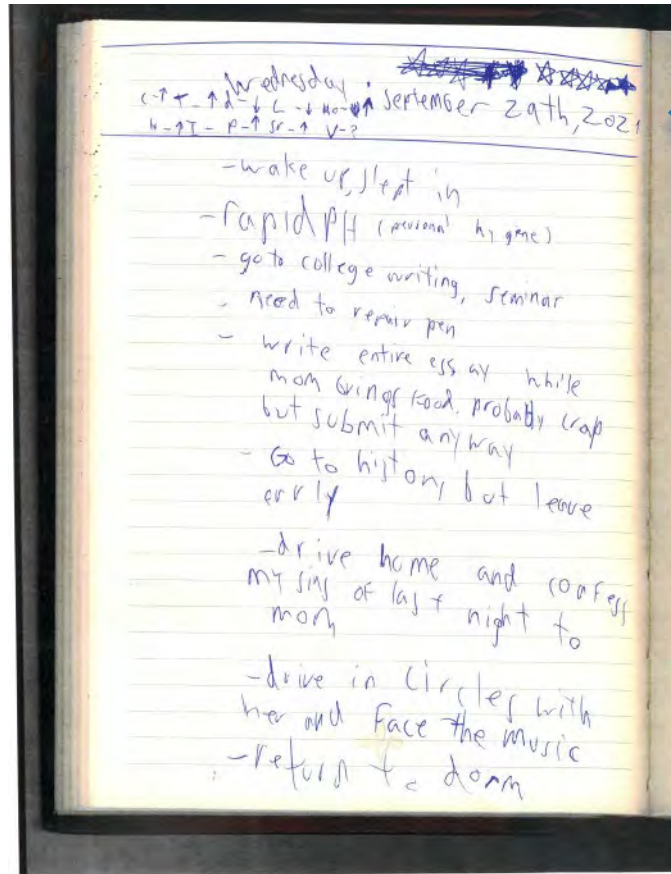 Wednesday.
C-↑ T- ↑ d-↓ L-↓ Mo-↑
September 29th, 2021
H-↑ I- P-↑ Sr-↑ V-?
-wake up, slept in
-rapid PH (personal hygene)
- go to college writing, seminar
- need to repair pen
- write entire essay while
mom brings food. probably crap
but submit anyway
- Go to history but leave
early
-drive home and confess
my sins of last night to
mom
-drive in circles with
her and Face the music
-return to dorm